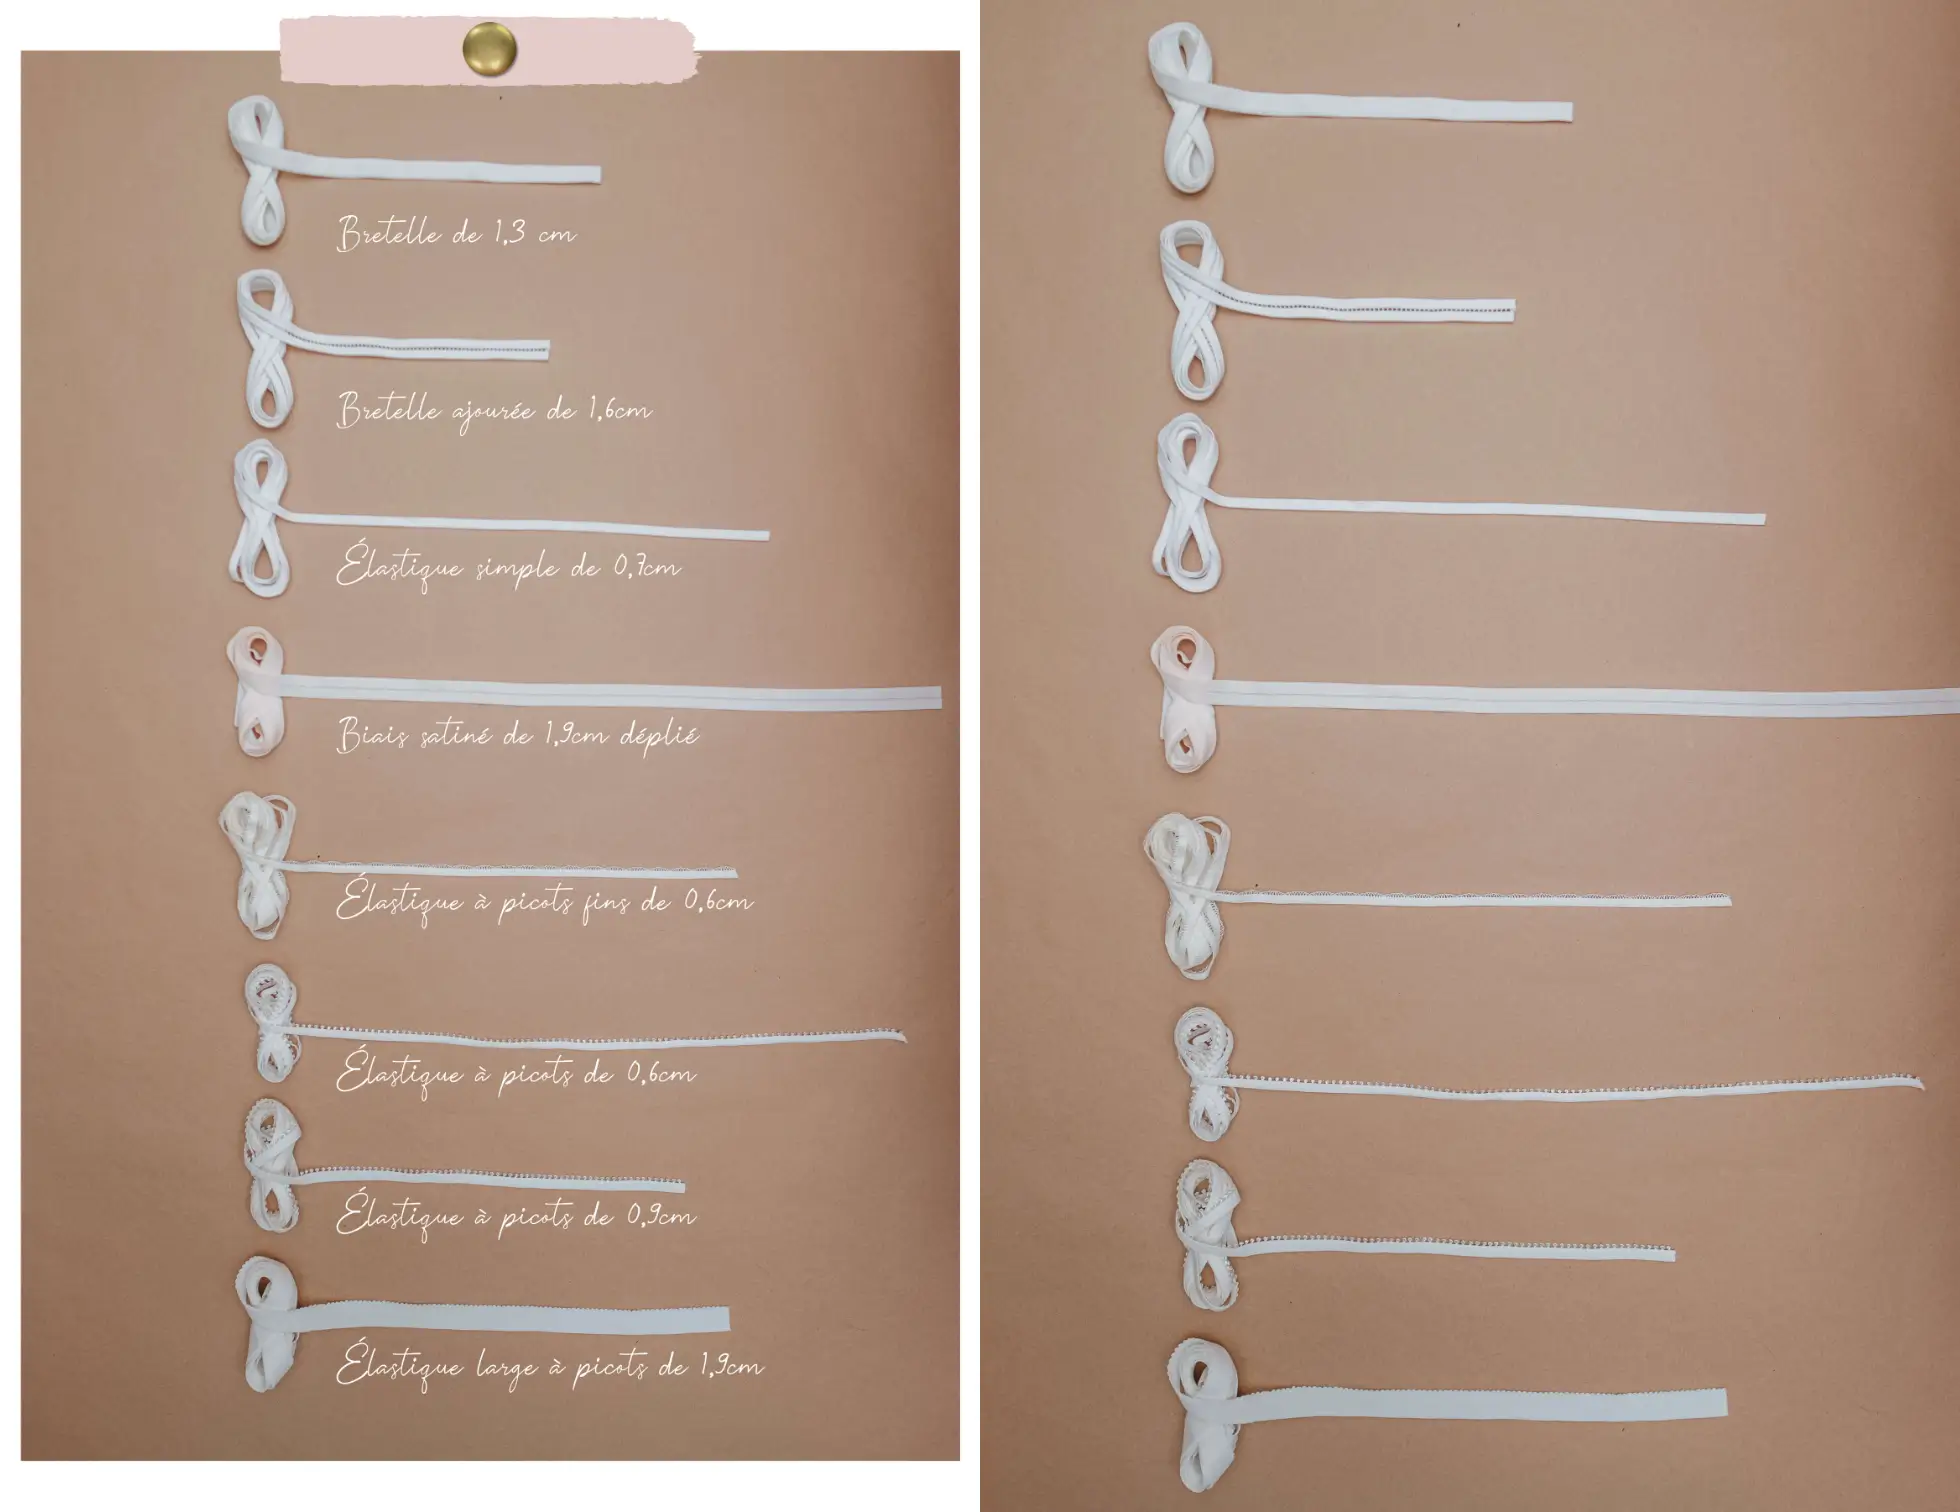 Bretelle de 1,3 cm
Bretelle ajourée de 1,6cm
Élastique simple de 0,7cm
Biais satiné de 1,9cm déplié
Élastique à picots fins de 0,6cm
Élastique à picots de 0,6cm
Élastique à picots de 0,9cm
Élastique large à picots de 1,9cm